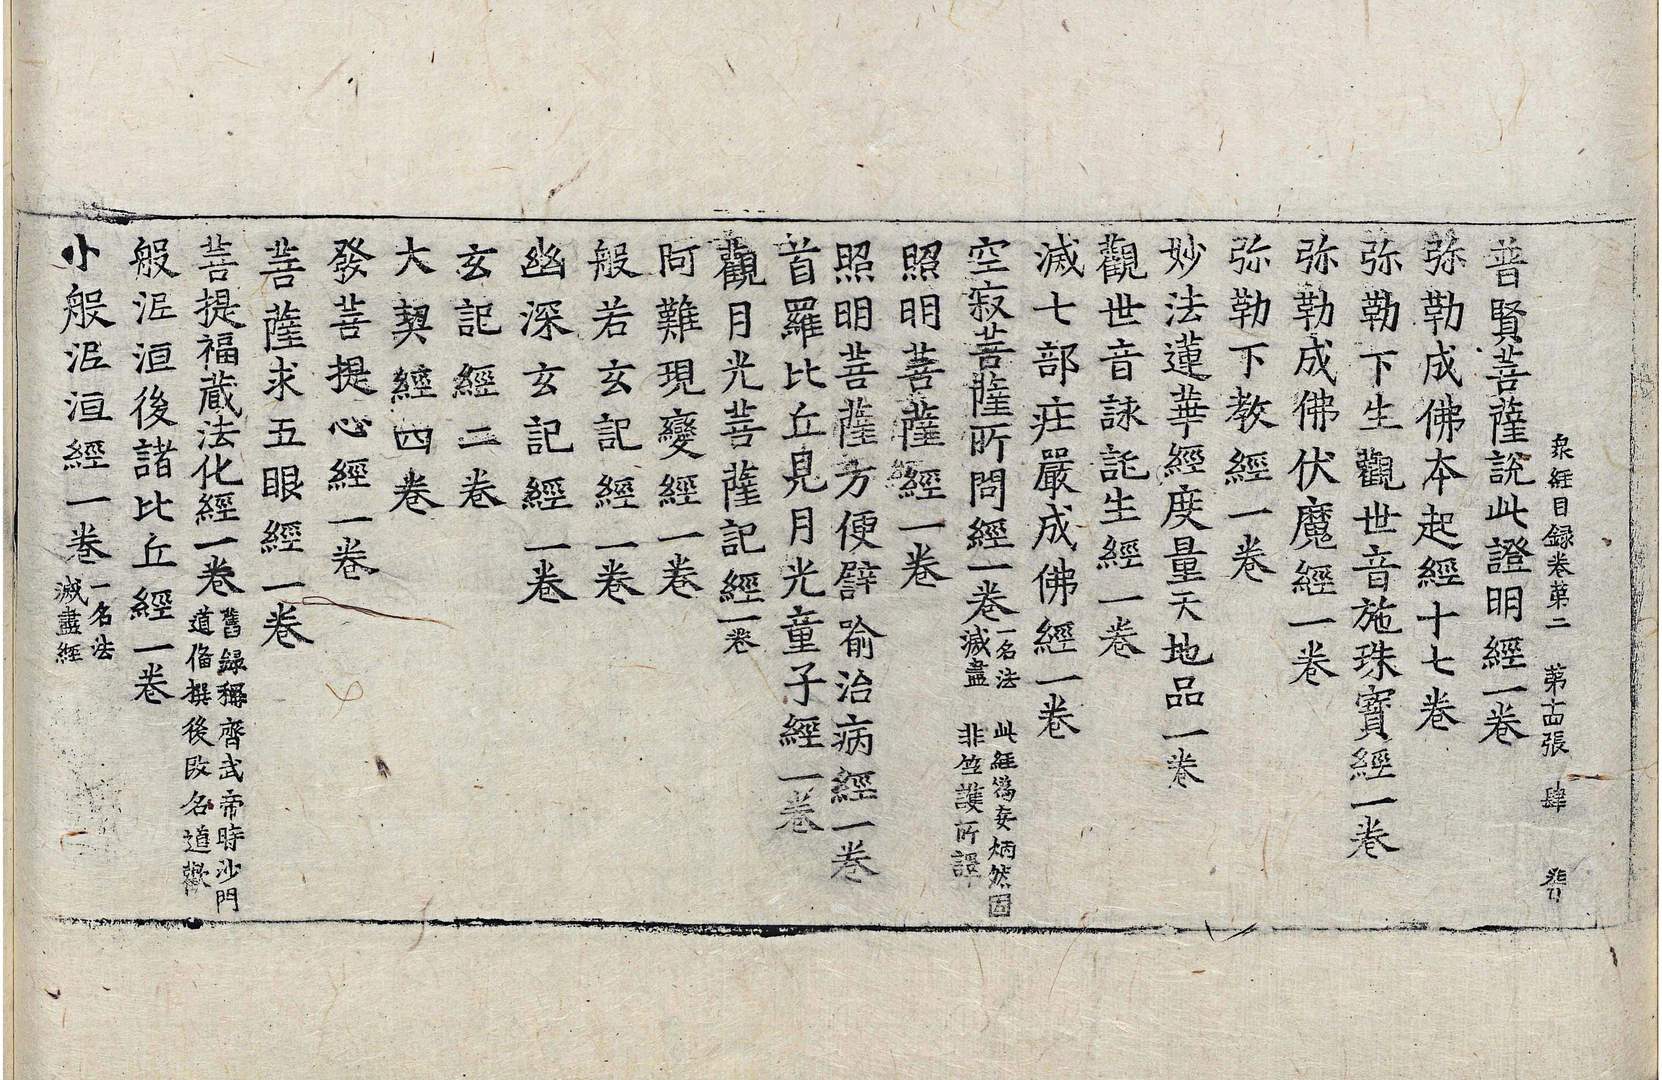 衆經目録卷第二 第十四張 肆
普賢菩薩說此證明經一卷
弥勒成佛本起經十七卷
弥勒下生觀世音施珠寶經一卷
弥勒成佛伏魔經一卷
弥勒下教經一卷
妙法蓮華經度量天地品一卷
觀世音詠託生經一卷
滅七部莊嚴成佛經一卷
空寂菩薩所問經一卷 一名法滅盡 此經僞妄炳然固非竺護所譯
照明菩薩經一卷
照明菩薩方便譬喻治病經一卷
首羅比丘見月光童子經一卷
觀月光菩薩記經一卷
阿難現變經一卷
般若玄記經一卷
幽深玄記經一卷
玄記經二卷
大契經四卷
發菩提心經一卷
菩薩求五眼經一卷
菩提福藏法化經一卷 舊録稱齊武帝時沙門道偹撰後改名道歡
般泥洹後諸比丘經一卷
小般泥洹經一卷 一名法滅盡經